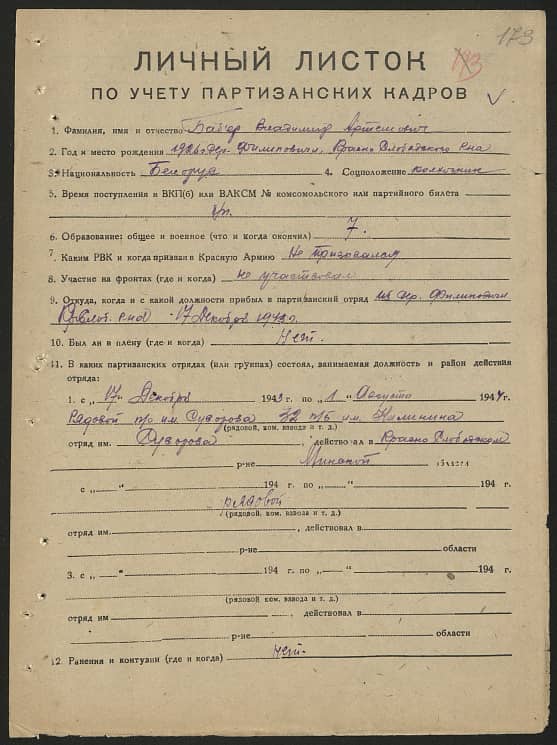 173
ЛИЧНЫЙ ЛИСТОК
ПО УЧЕТУ ПАРТИЗАНСКИХ КАДРОВ
1. Фамилия, имя и отчество Владимир Артемович
2. Год и место рождения 1926 дер. Филиповичи, Красно Слободского р-на
3. Национальность Белорус 4. Соцположение колхозник
5. Время поступления в ВКП(б) или ВЛКСМ № комсомольского или партийного билета
б/п.
6. Образование: общее и военное (что и когда окончил) 7.
7. Каким РВК и когда призван в Красную Армию Не призывался
8. Участие на фронтах (где и когда) не участвовал
9. Откуда, когда и с какой должности прибыл в партизанский отряд из дер. Филиповичи
р-на 17 Декабря 1943 г.
10. Был ли в плену (где и когда) Нет.
11. В каких партизанских отрядах (или группах) состоял, занимаемая должность и район действия
отряда:
1. с „17“ Декабря 1943 г. по „1“ Августа 1944 г.
Рядовой п/о им. Суворова 32 п/б им. Калинина
(рядовой, ком. взвода и т. д.)
отряд им. Суворова, действовал в Красно Слободском
р-не Минской области
с „—“ 194 г. по „—“ 194 г.
рядовой
(рядовой, ком. взвода и т. д.)
отряд им., действовал в
р-не области
3. с „—“ 194 г. по „—“ 194 г.
(рядовой, ком. взвода и т. д.)
отряд им, действовал в
р-не области
12. Ранения и контузии (где и когда) Нет.